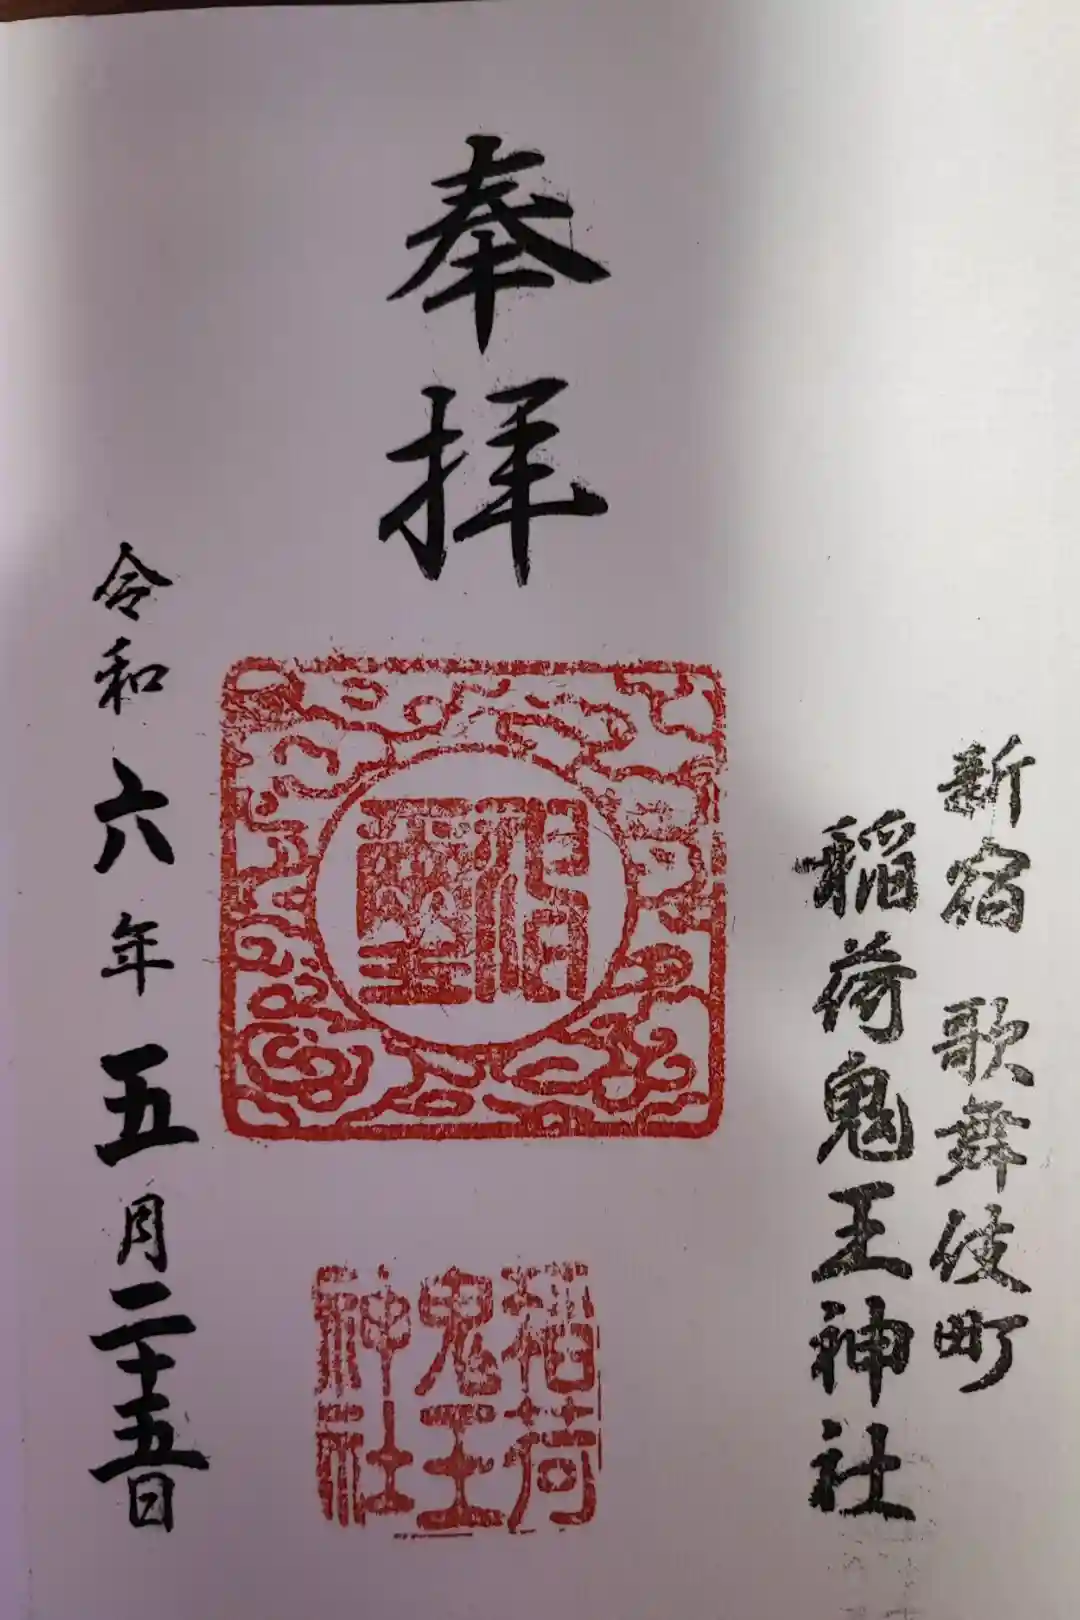 新宿 歌舞伎町
稲荷鬼王神社
奉拝
稲荷
鬼王
神社
令和六年五月二十五日